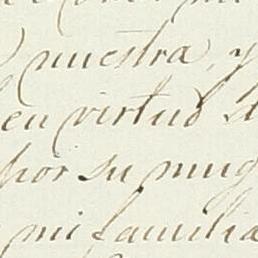 nuestra, y
en virtud
por su mug
mi familia